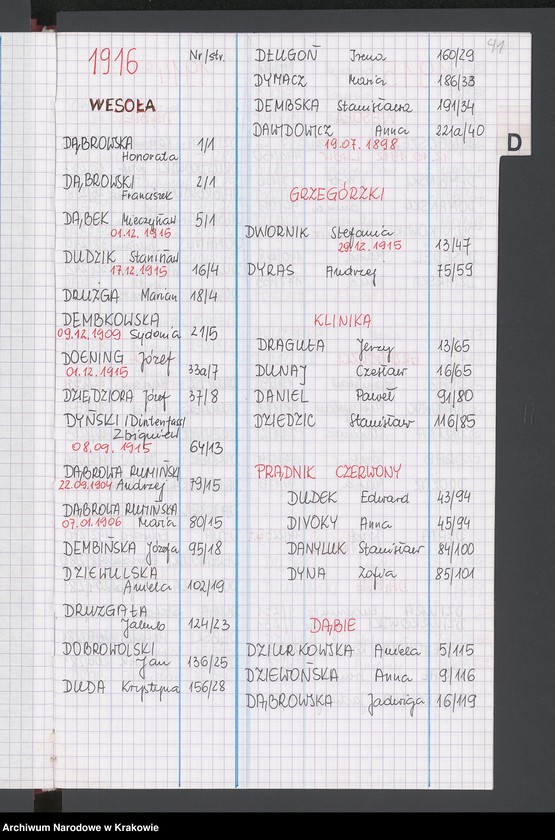 1916 Nr/str.
WESOŁA
DĄBROWSKA
Honorata 1/1
DĄBROWSKI 2/1
Franciszek
DĄBEK Mieczysław 5/1
01.12.1915
DUDZIK Stanisław
17.12.1915 16/4
DRUŻGA Marian 18/4
DEMBKOWSKA
09.12.1909 Sydonia 21/5
DOENING Józef
01.12.1915 33a/7
DZIĘDZIORA Józef 37/8
DYŃSKI /Dintenfass/
Zbigniew
08.09.1915 64/13
DĄBROWA RUMIŃSKI
22.09.1904 Andrzej 79/15
DĄBROWA RUMIŃSKA
07.01.1906 Maria 80/15
DEMBIŃSKA Józefa 95/18
DZIEWULSKA
Aniela 102/19
DRUZGAŁA
Jakub 124/23
DOBROWOLSKI
Jan 136/25
DUDA Krystyna 156/28
41
DŁUGOŃ Irena 160/29
DYMACZ Maria 186/33
DEMBSKA Stanisława 191/34
DAWIDOWICZ Anna 221a/40
19.07.1898
D
GRZEGÓRZKI
DWORNIK Stefania
29.12.1915 13/47
DYRAS Andrzej 75/59
KLINIKA
DRAGUŁA Jerzy 13/65
DUNAJ Czesław 16/65
DANIEL Paweł 91/80
DZIEDZIC Stanisław 116/85
PRĄDNIK CZERWONY
DUDEK Edward 43/94
DIVOKY Anna 45/94
DANYLUK Stanisław 84/100
DYNA Zofia 85/101
DĄBIE
DZIURKOWSKA Aniela 5/115
DZIEWOŃSKA Anna 9/116
DĄBROWSKA Jadwiga 16/119
Archiwum Narodowe w Krakowie